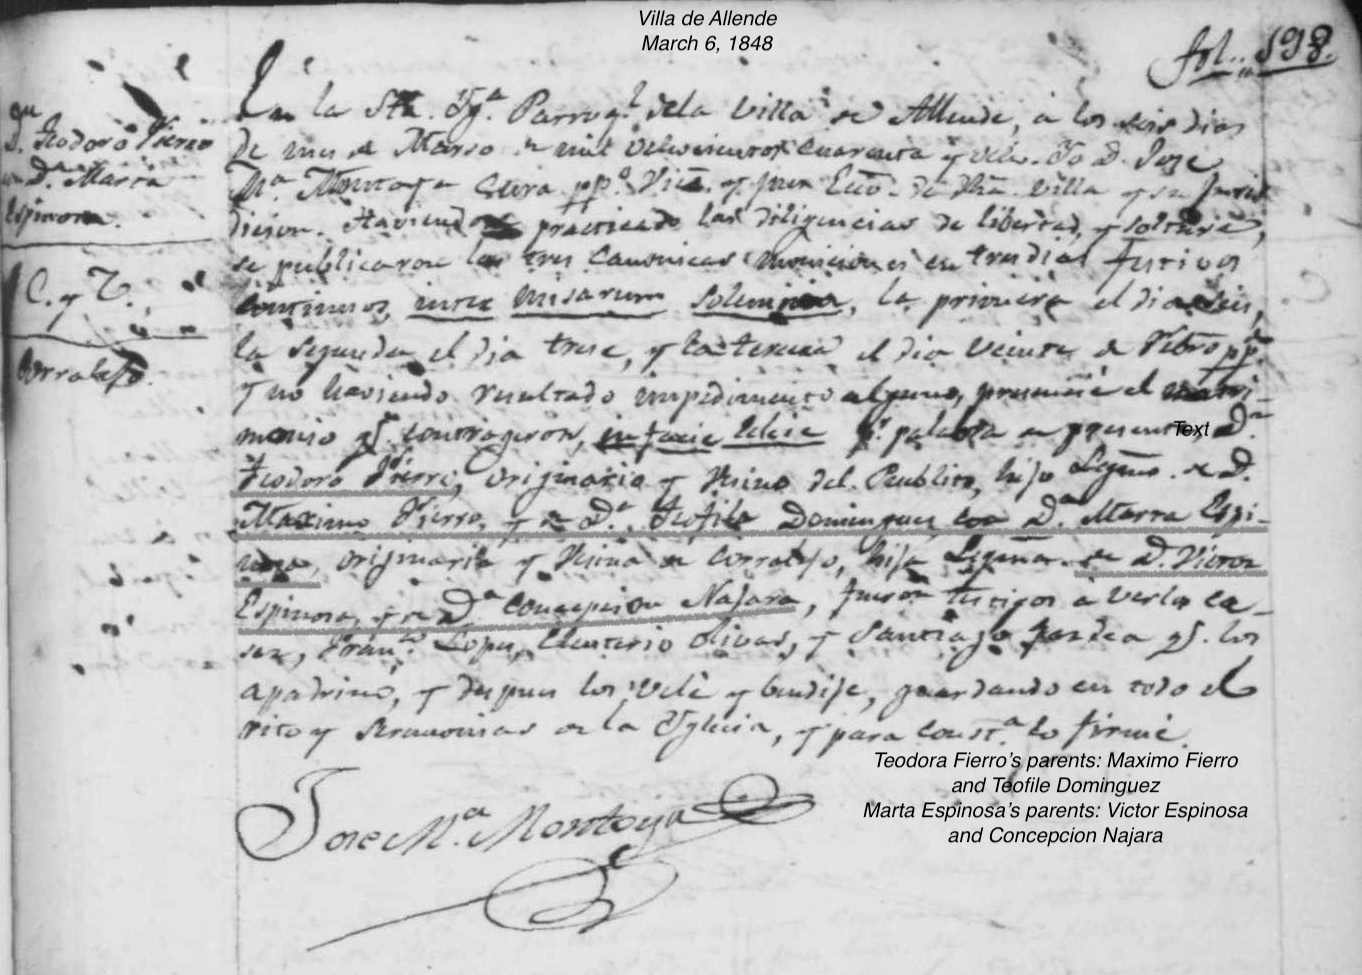 Villa de Allende
March 6, 1848
fol.. 198.
D. Teodoro Fierro
con Da. Maria
Espinosa.
C. y V.
Corralejo.
En la Sta. Yga. Parroql. de la Villa de Allende, a los seis dias
de mes de Marso de mil ochosientos cuarenta y ocho. Yo D. Jose
Ma. Montoya Cura ppo. Vico. y Jues Ecco. de dha. Villa y su Juris
dicion. Haviendo practicado las diligencias de libertad, y soltura,
se publicaron las tres canonicas moniciones en tres dias festivos
continuos, inter misarum solemnia, la primera el dia seis,
la segunda el dia trese, y la tercera el dia veinte de Febro. pp.
y no haviendo resultado impedimento alguno, presencié el matri-
monio qe. contrageron, in facie Eclecie pr. palabra de presente Dn.
Text
Teodoro Fierro, originario y vesino del Pueblito, hijo Legmo. de D.
Maximo Fierro, y de Da. Teofila Dominguez con Da. Marta Espi-
nosa, originaria y vesina de Corralejo, hija Legma. de D. Victor
Espinosa, y de Da. Concepcion Najara, fueron testigos a verlos ca-
sar, Franco. Lopes, Eleuterio Olivas, y Santiago qe. los
apadrinó, y despues los velé y bendije, guardando en todo el
rito y seremonias de la Yglecia, y para consta. lo firmé.
Teodora Fierro's parents: Maximo Fierro
and Teofile Dominguez
Marta Espinosa's parents: Victor Espinosa
and Concepcion Najara
Jose Ma. Montoya